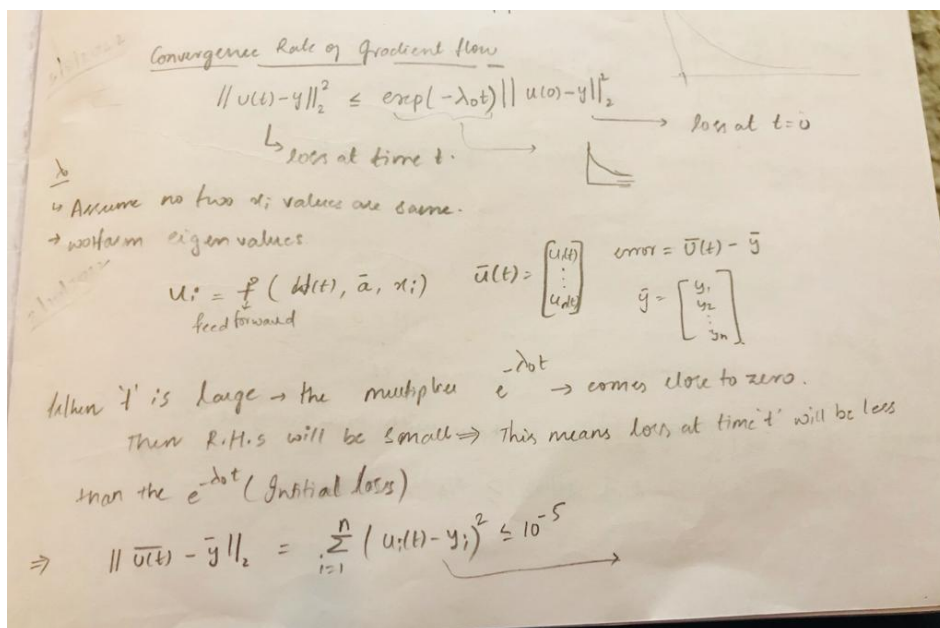 Convergence Rate of gradient flow
||u(t)-y||₂² ≤ exp(-λ₀t)||u(0)-y||₂²
loss at t=0
loss at time t.
λ₀
Assume no two xᵢ values are same.
→ eigen values.
uᵢ = f(W(t), ā, xᵢ)
feed forward
ū(t) = [u₁(t) ⋮ uₙ(t)]
error = ū(t) - ȳ
ȳ = [y₁ y₂ ⋮ yₙ]
When 't' is large → the multiplier e^{-λ₀t} → comes close to zero.
Then R.H.S will be small ⇒ This means loss at time 't' will be less
than the e^{-λ₀t} (Initial loss)
⇒ ||ū(t) - ȳ||₂ = Σᵢ₌₁ⁿ (uᵢ(t) - yᵢ)² ≤ 10⁻⁵